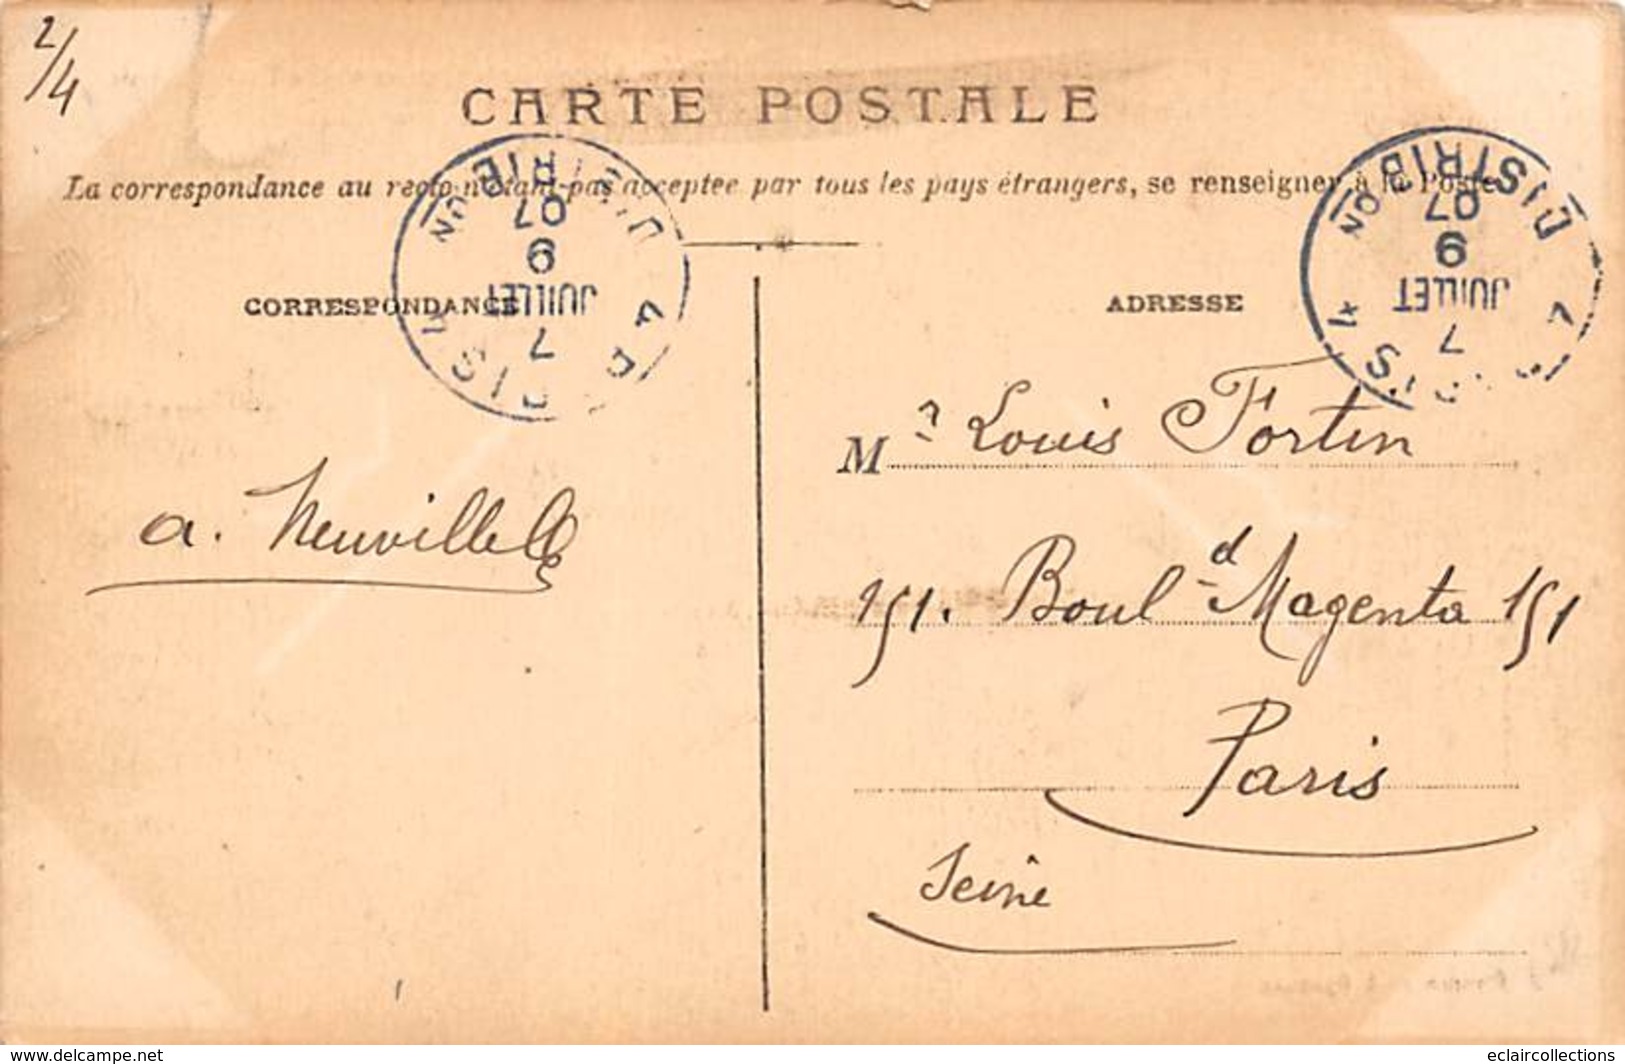 2/4
CARTE POSTALE
La correspondance au recto n'étant pas acceptee par tous les pays étrangers, se renseigner à la Poste
CORRESPONDANCE
ADRESSE
DISTRIB
07
9
JUILLET
7
07
9
JUILLET
7
Mr Louis Fortin
a. Neuville
151. Bould Magenta 151
Paris
Seine
www.delcampe.net
eclaircollections